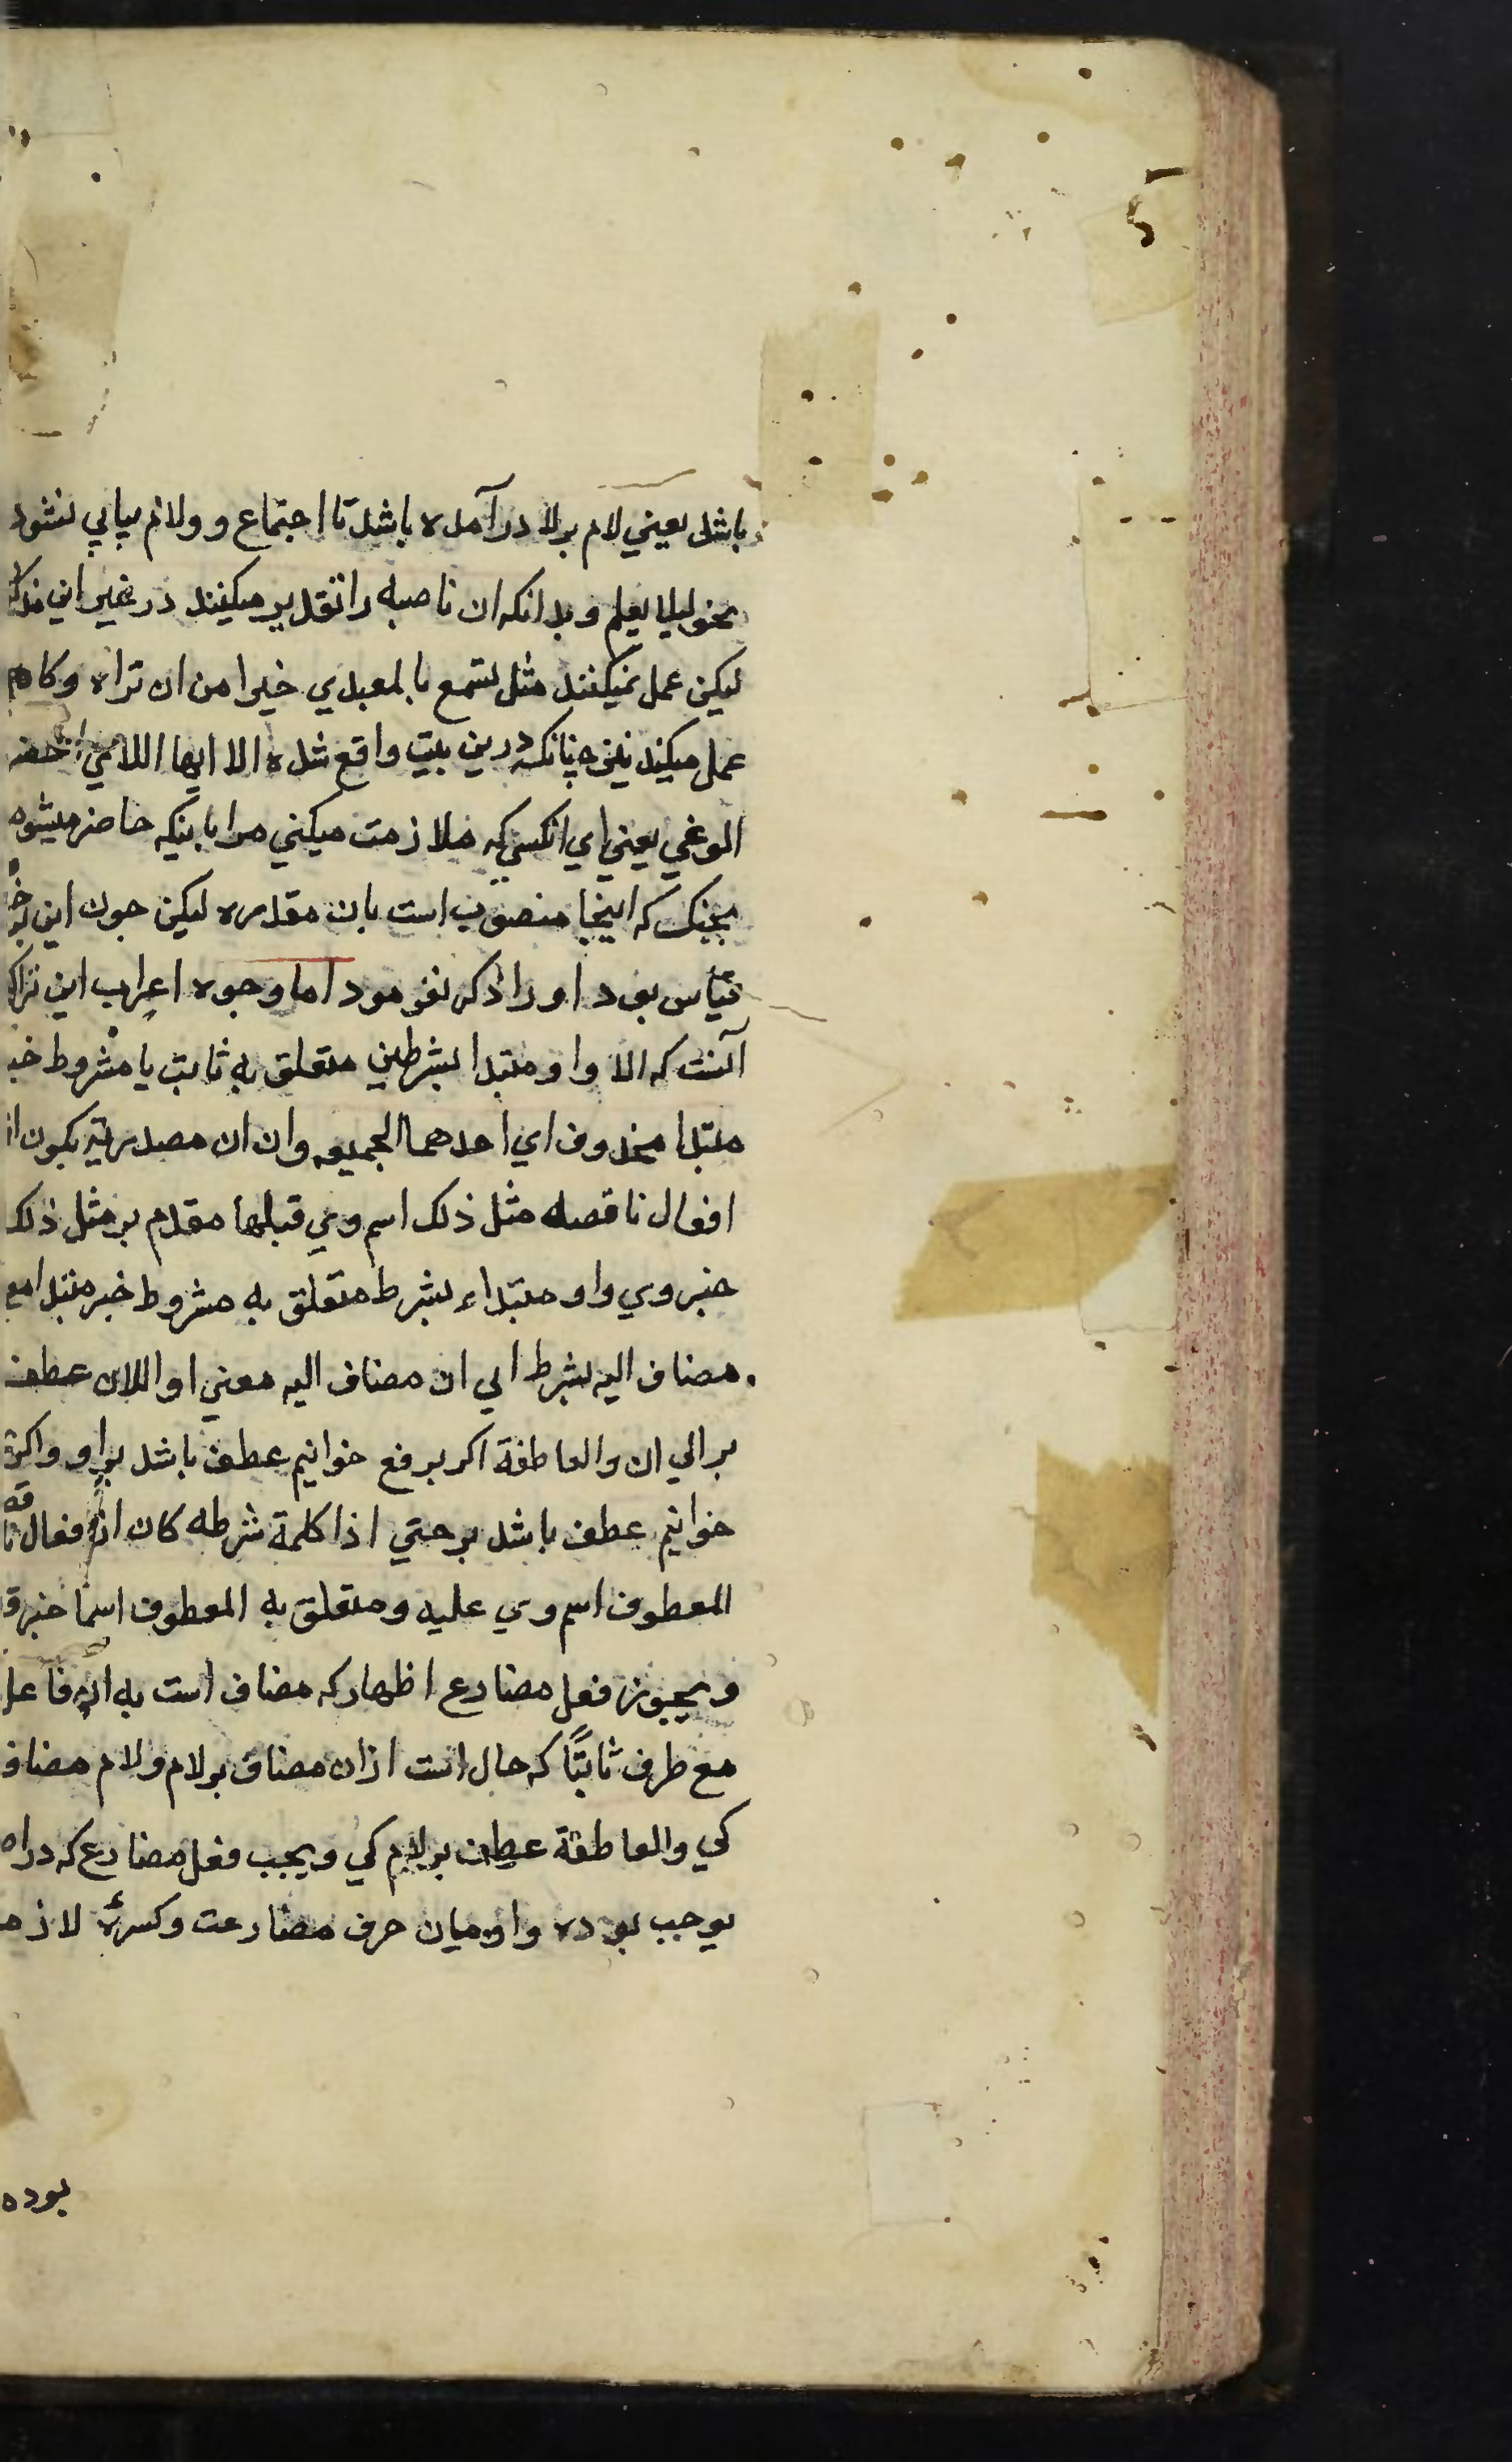 باشد يعني لام برلا درآمده باشد تا اجتماع و ولام بيابي نشود
نحو ليلا يعلم و بدانكه ان ناصبه را تقدير ميكنند در غير اين
ليكن عمل نميكنند مثل تسمع بالمعيدي خيرا من ان تراه وكاه
عمل ميكند نيز چنانكه درين بيت واقع شده الا ايها اللامي احضر
الوغي يعني اي انكسي كه ملازمت ميكني مرا باينكه حاضر ميشوم
بجنك كه اينجا منصوب است بان مقدره ليكن جون اين
قياس بود اورا ذكر نفرمود اما وجوه اعراب اين
آنست كه الا واو مبتدا بشرطين متعلق به ثابت يا مشروط خبر
مبتدا محذوف اي احدهما الجميعه وان ان مصدريه يكون از
افعال ناقصه مثل ذلك اسم وي قبلها مقدم بر مثل ذلك
خبر وي واو مبتداء بشرط متعلق به مشروط خبر مبتدا مع
مضاف اليه بشرط الي ان مضاف اليه معني او اللان عطف
بر الي ان والعاطفة اكر برفع خوانيم عطف باشد براو واكر
خوانيم عطف باشد بر حتي اذا كلمة شرطه كان از افعال ناقصه
المعطوف اسم وي عليه ومتعلق به المعطوف اسما خبر
ويجوز فعل مضارع اظهار كه مضاف است به ان فاعل
مع ظرف ثابتًا كه حال است ازان مضاف بر لام ولام مضاف
كي والعاطفة عطف بر لام كي ويجب فعل مضارع كه دراه
يوجب بوده واو ميان حرف مضارعت وكسرهٔ لازم
بوده